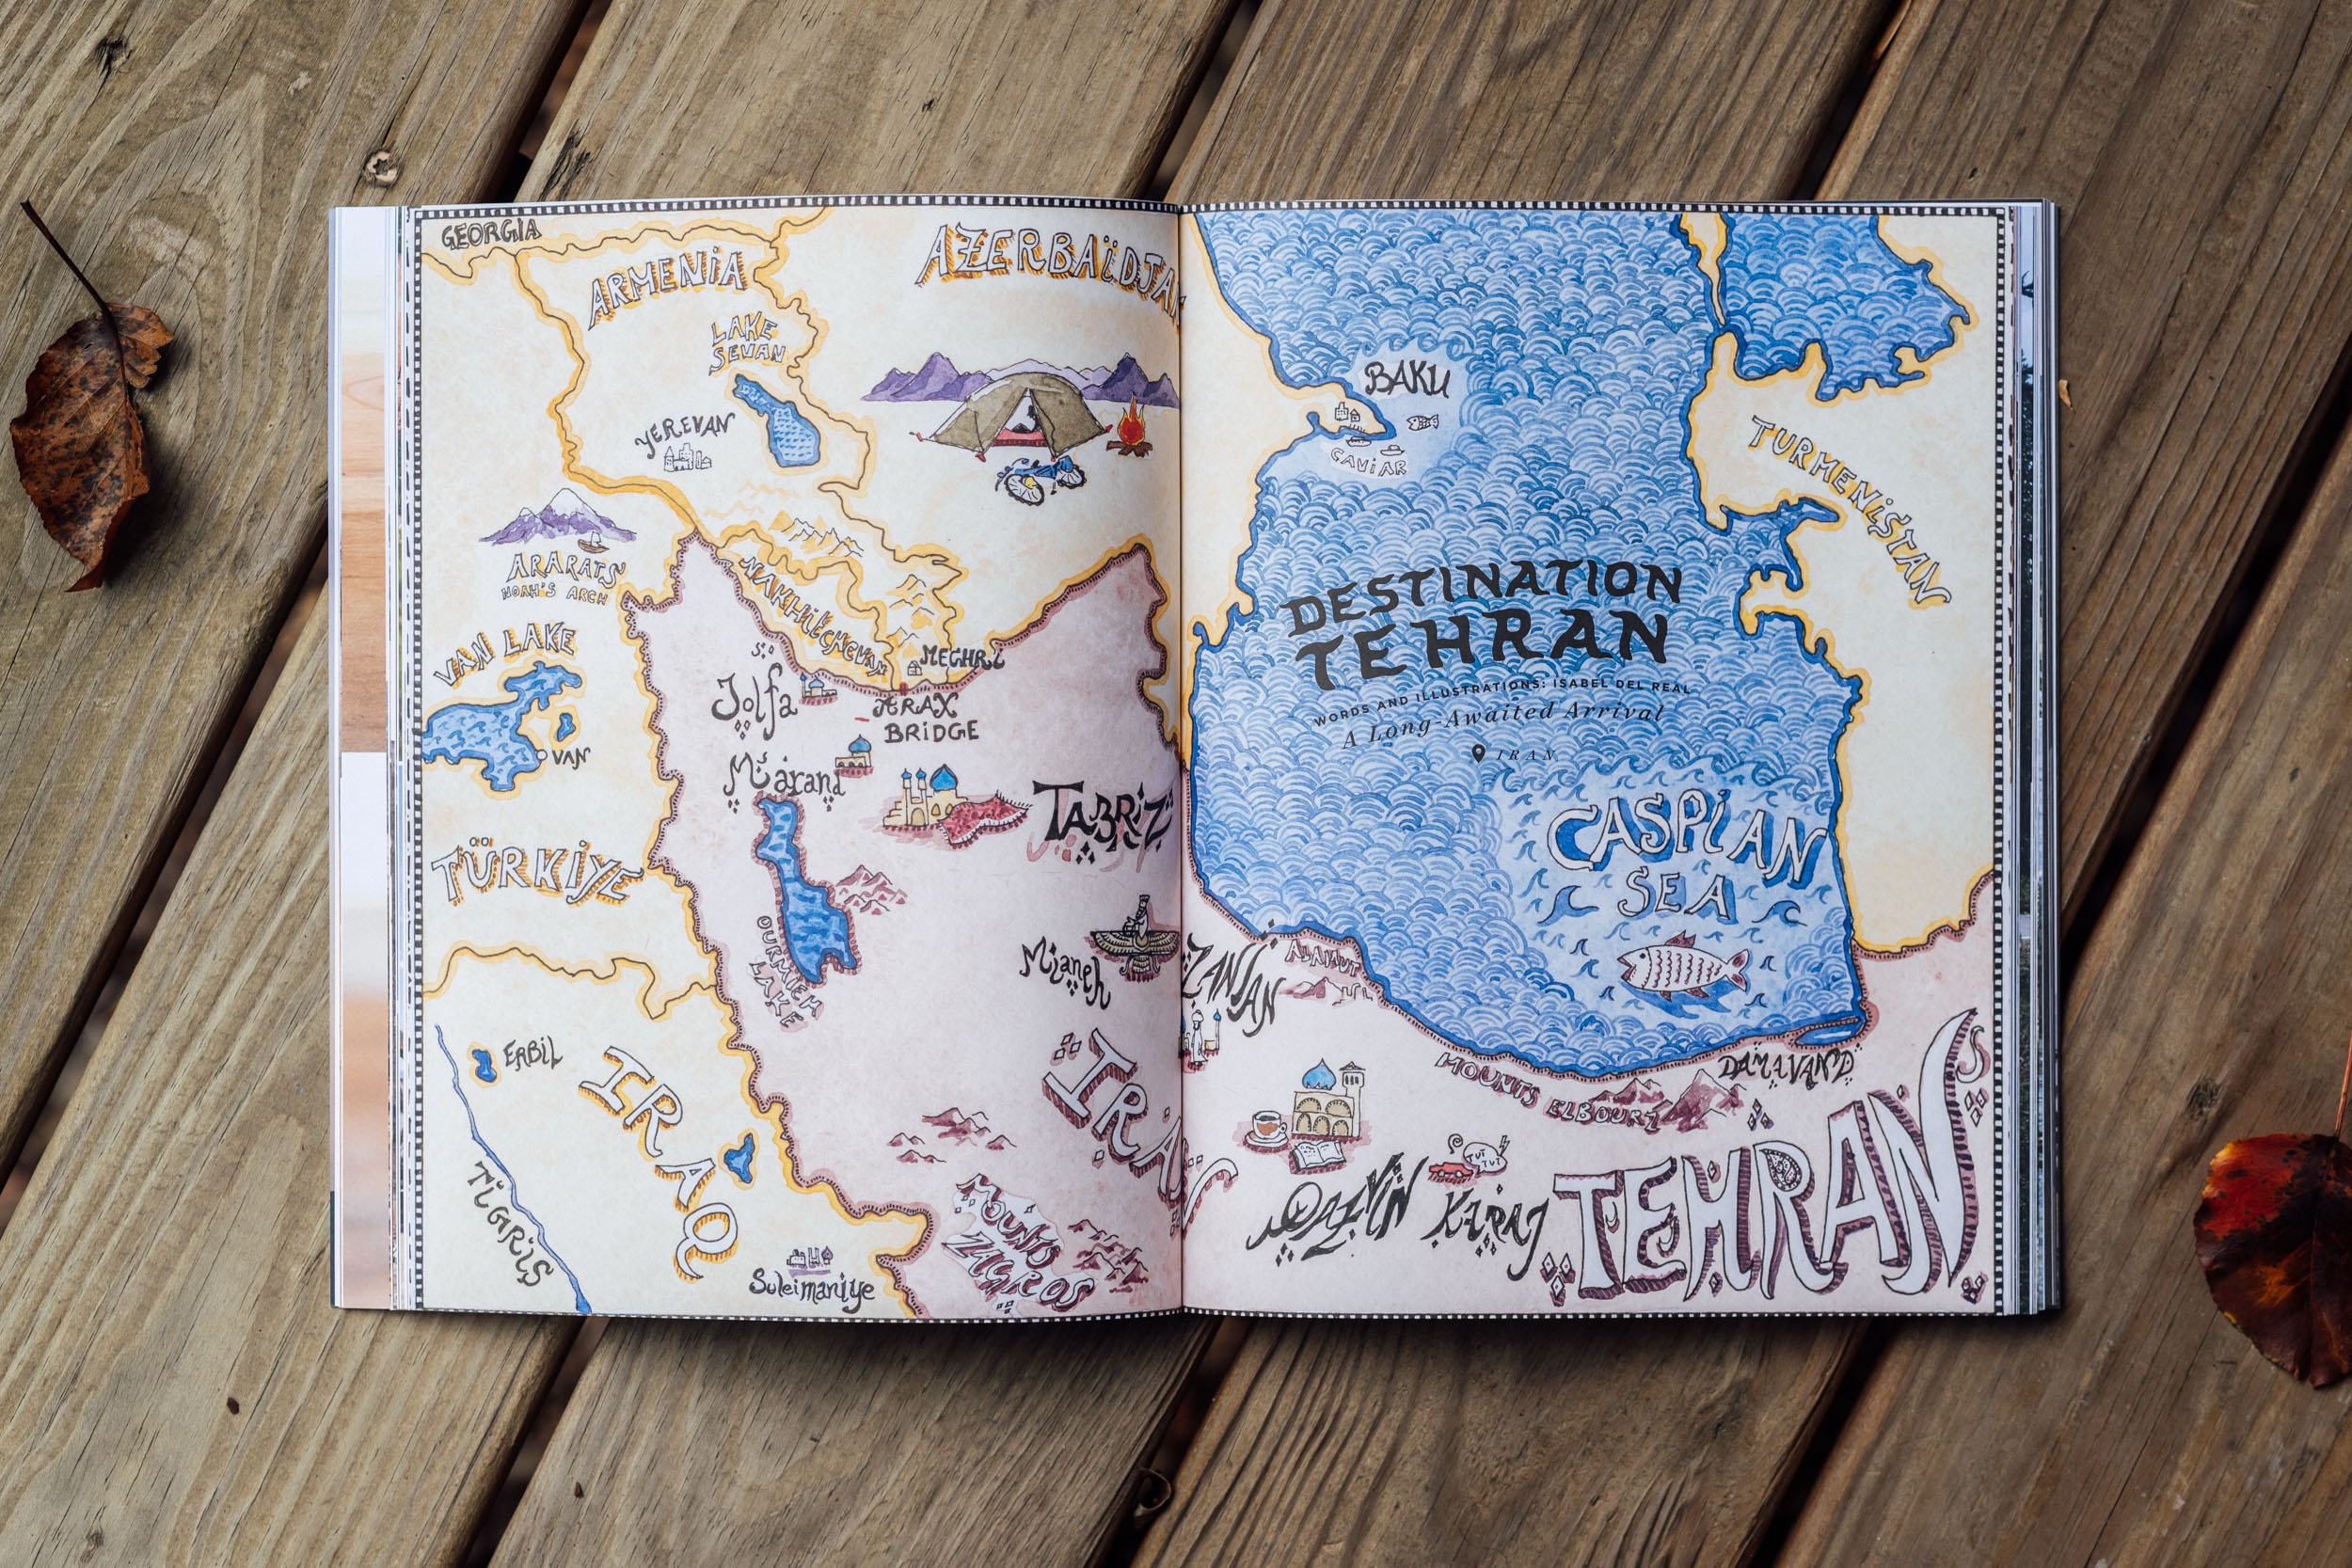 GEORGIA
ARMENIA
AZERBAÏDJAN
LAKE
SEVAN
YEREVAN
ARARATS
NOAH'S ARCH
NAKHiTCHEVAN
MEGHRi
VAN LAKE
VAN
Jolfa
ARAX
BRiDGE
Marand
TABRiZ
TÜRKiYE
OURMIEH
LAKE
Mianeh
ERBiL
IRAQ
TiGRiS
Suleimaniye
IRAN
MOUNTS
ZAGROS
BAKU
CAViAR
TURMENiSTAN
DESTINATION
TEHRAN
WORDS AND ILLUSTRATIONS: ISABEL DEL REAL
A Long-Awaited Arrival
IRAN
CASPiAN
SEA
ZANJAN
ALAMUT
MOUNTS ELBOURZ
DAMAVAND
QAZVIN
KARAJ
TUT
TUT
TEHRAN